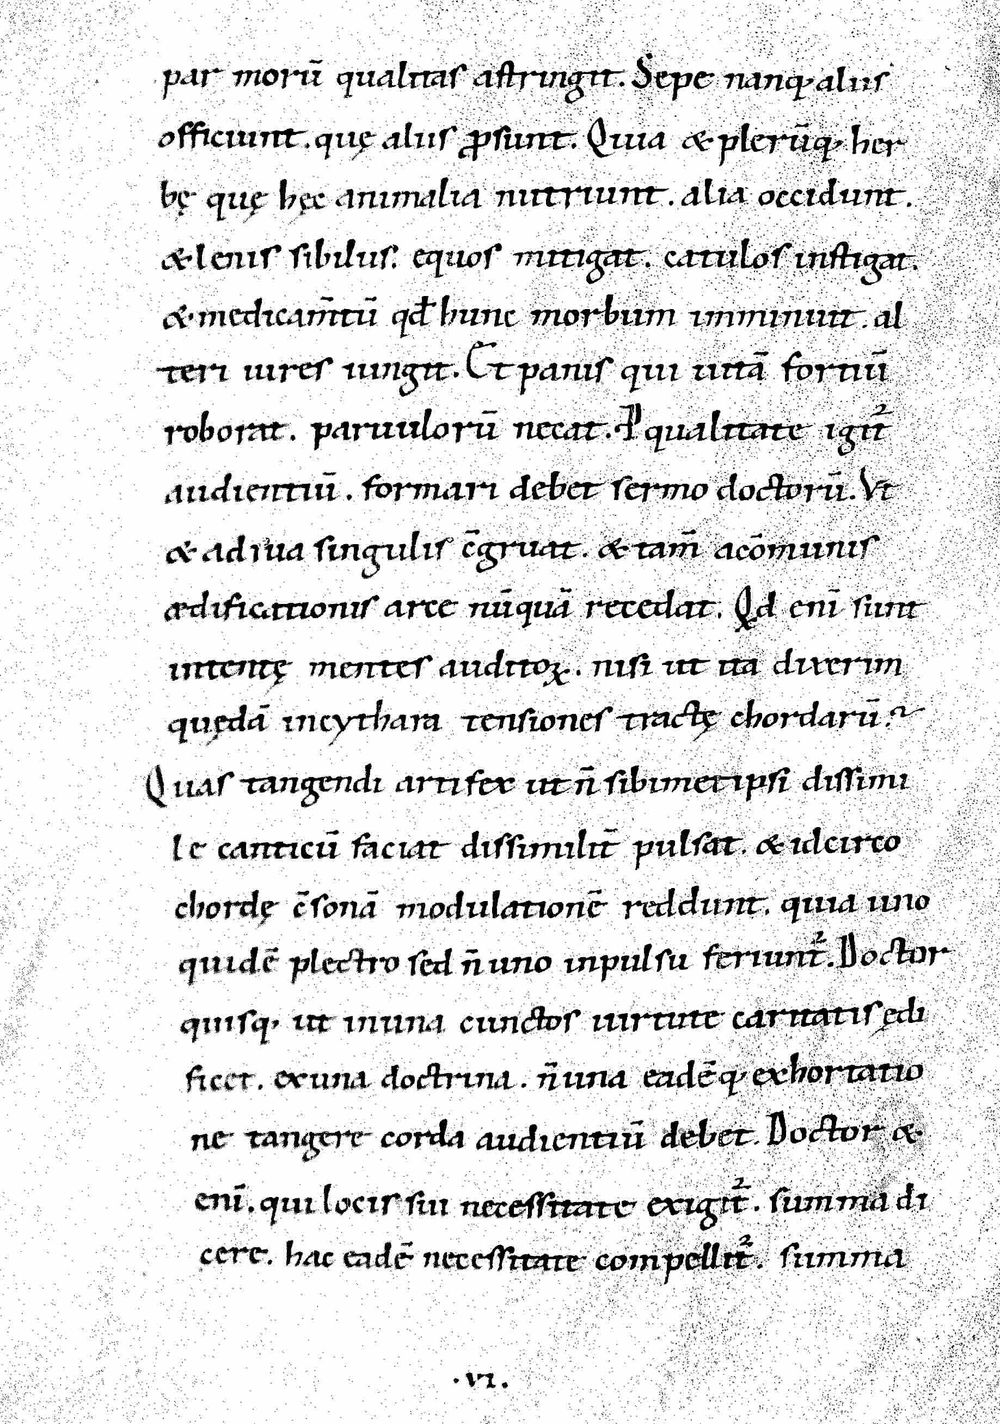 par morū qualitas astringit. Sepe nanq; aliis
officiunt. quę aliis ꝓsunt. Quia & plerūq; her
bę quę hęc animalia nutriunt. alia occidunt.
& lenis sibilus. equos mitigat. catulos instigat.
& medicam̄tū qđ hunc morbum imminuit. al
teri uires iungit. Et panis qui uitā fortiū
roborat. paruulorū necat. P qualitate igit᷑
audientiū. formari debet sermo doctorū. Vt
& ad sua singulis c̄gruat. & tam̄ acōmunis
ædificationis arte nūquā recedat. Qd enī sunt
intentę mentes auditoꝝ. nisi ut ita dixerim
quędā incythara tensiones tractę chordarū?
Quas tangendi artifex ut n̄ sibimet ipsi dissimi
le canticū faciat dissimilit̄ pulsat. & idcirco
chordę c̄sonā modulationē reddunt. quia uno
quidē plectro sed n̄ uno inpulsu feriunt᷑. Doctor
quisq; ut inuna cunctos uirtute caritatis ędi
ficet. exuna doctrina. n̄ una eadēq; exhortatio
ne tangere corda audientiū debet. Doctor &
enī. qui locis sui necessitate exigit᷑. summa di
cere. hac eadē necessitate compellit᷑. summa
·vi.